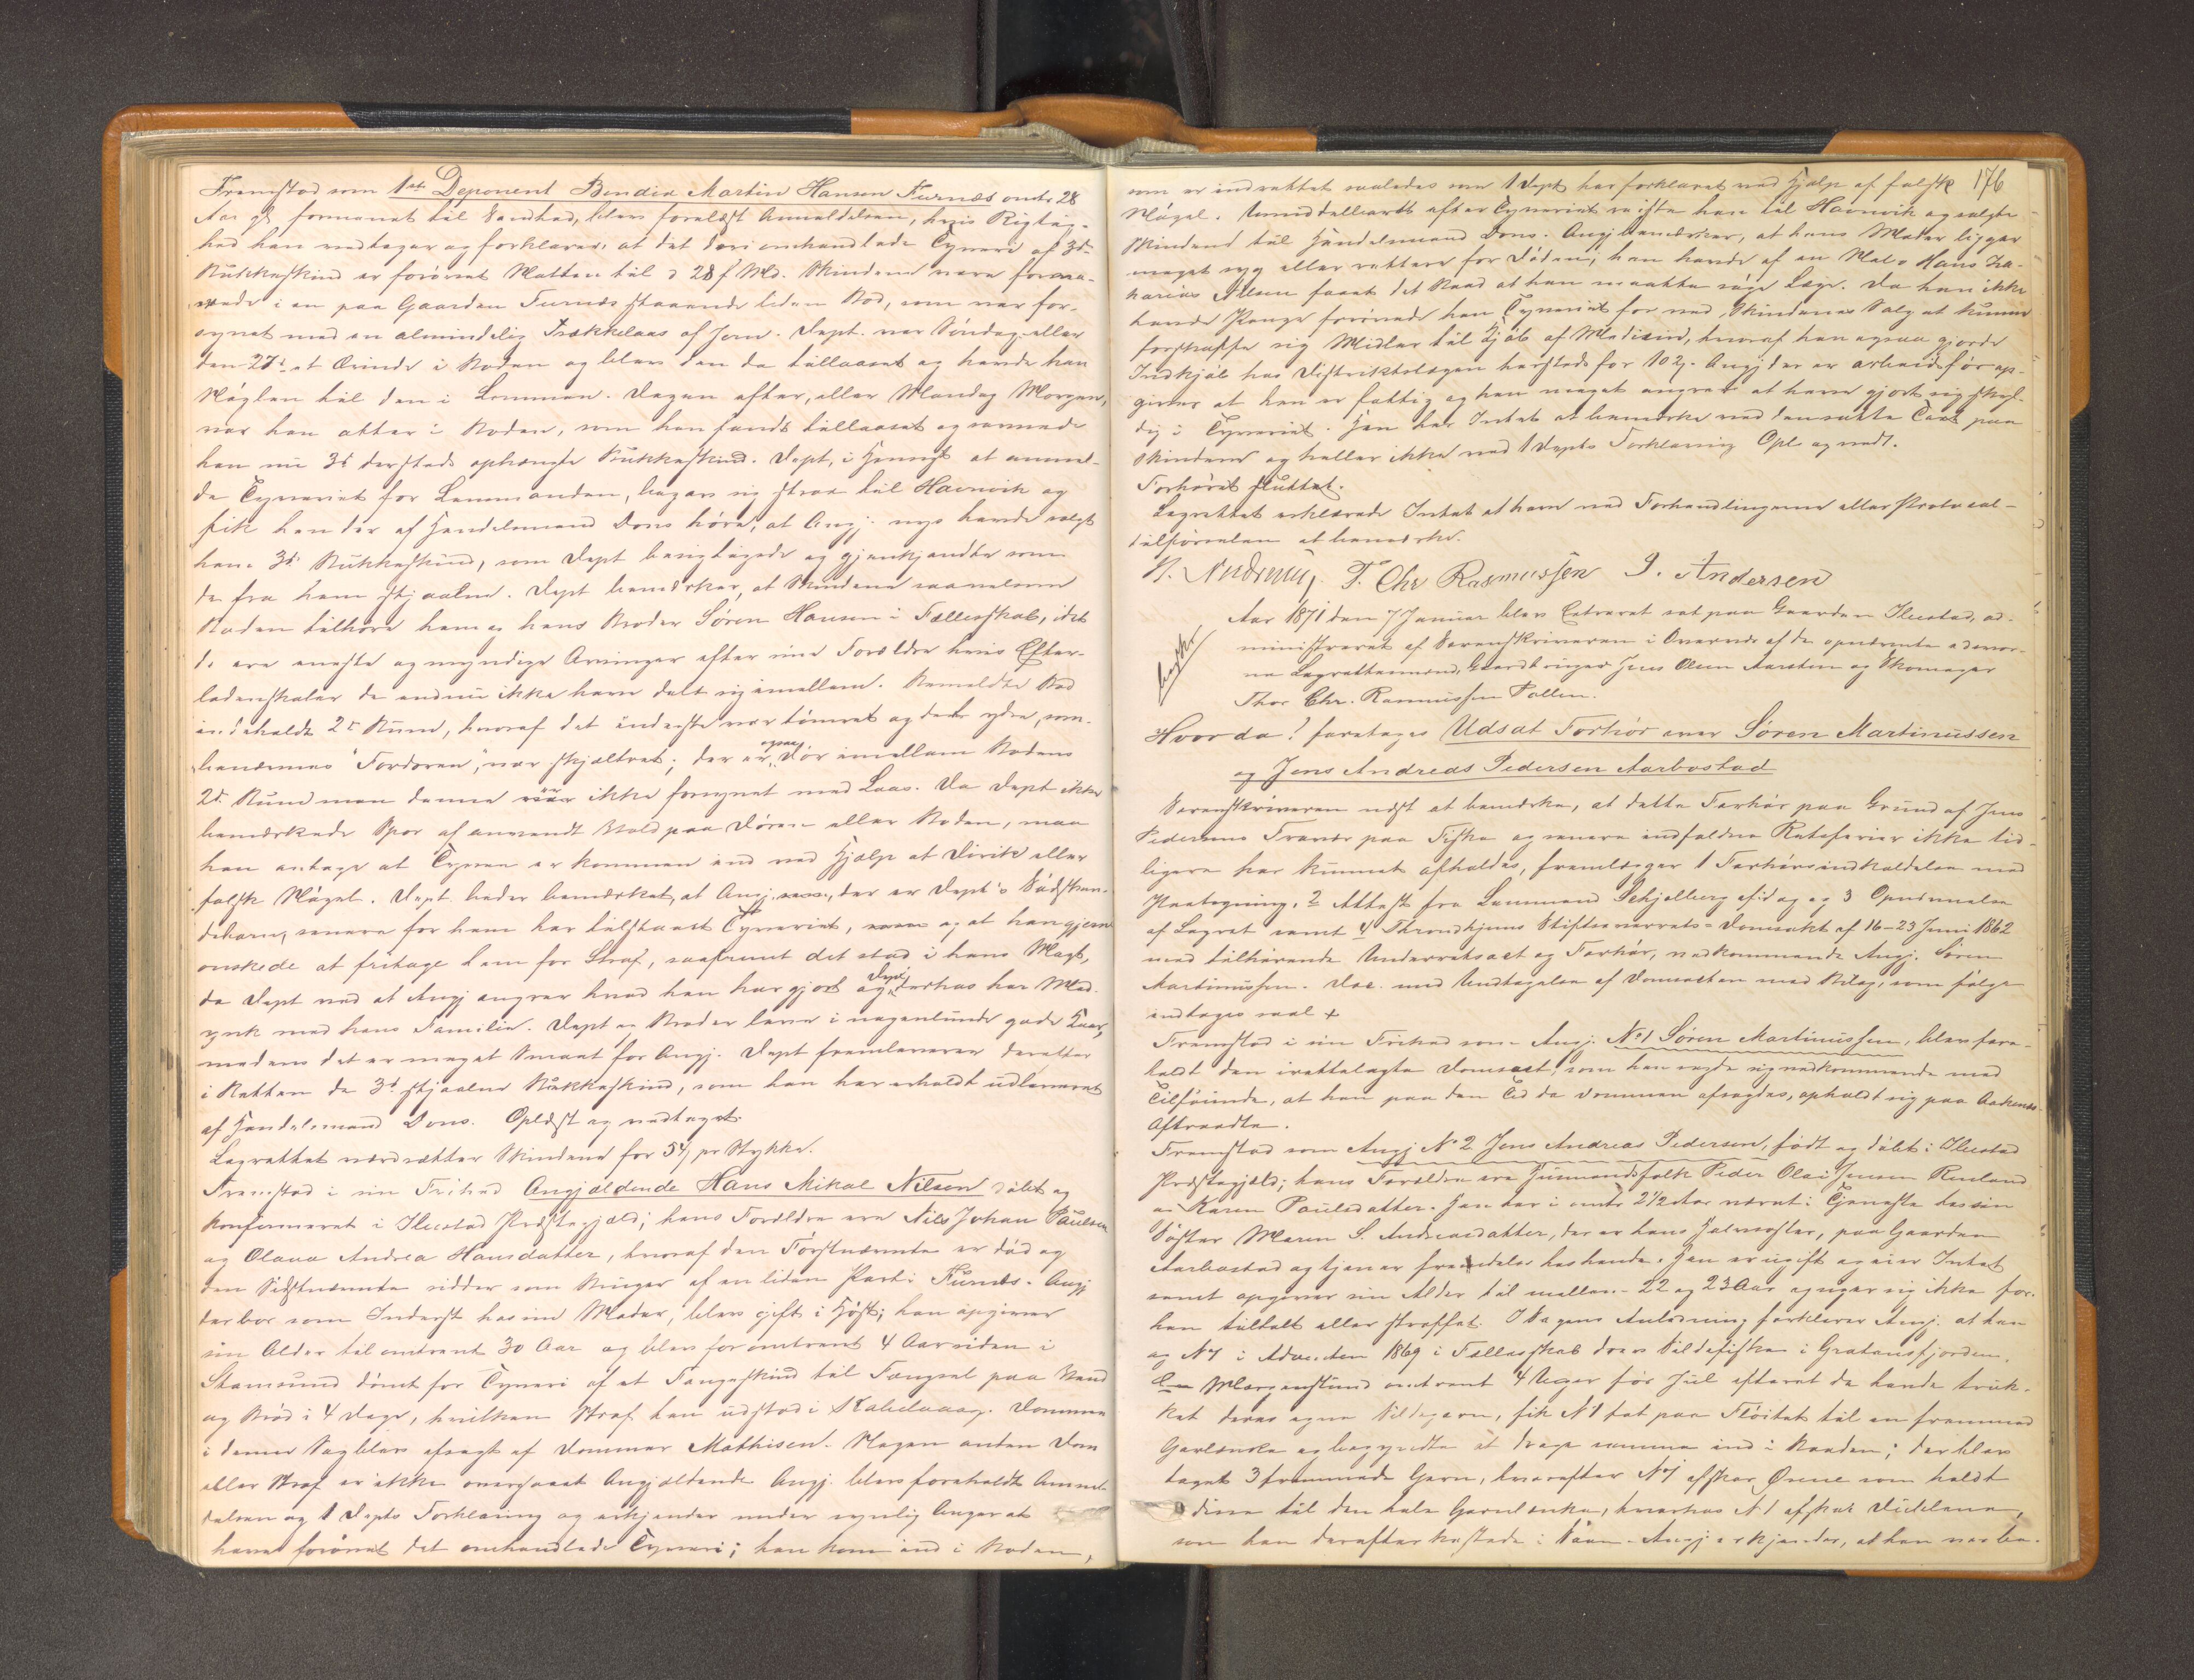 Fremstod som 1ste Deponent Bendix Martin Hansen Furnæs omtr 28
Aar gl, formanet til Sandhed, blev forelæst Anmeldelsen, hvis Rigtig-
hed han vedtager og forklarer, at det deri omhandlede Tyveri af 3de
Bukkeskind er forøvet Natten til d 28 f Md. Skindene vare forva-
rede i en paa Gaarden Furnæs staaende liden Bod, som var for-
synet med en almindelig Trækkelaas af Jern. Dept. var Søndag eller
den 27de et Ærinde i Boden og blev den da tillaaset og havde han
Nøglen til den i Lommen. Dagen efter, eller Mandag Morgen,
var han atter i Boden, som han fandt tillaaset og savnede
han nu 3de dersteds ophængte Bukkeskind. Dept, i Hensigt at anmel-
de Tyveriet for Lensmanden, begav sig strax til Havnvik og
fik han der af Handelsmand Dons høre, at Angj. nys havde solgt
ham 3de Bukkeskind, som Dept besigtigede og gjenkjendte som
de fra ham stjaalne. Dept bemærker, at Skindene saavelsom
Boden tilhøre ham og hans Broder Søren Hansen i Fællesskab, idet
de ere eneste og myndige Arvinger efter sine Forældre hvis Efter-
ladenskaber de endnu ikke have delt sig imellem. Bemeldte Bod
indeholdt 2de Rum, hvoraf det inderste var tømret og det ydre, som
benævnes "Fordøren", var skjæltret; der er ogsaa Dør imellem Bodens
2de Rum men denne var ikke forsynet med Laas. Da Dept ikke
bemærkede Spor af anvendt Vold paa Døren eller Boden, maa
han antage at Tyven er kommen ind ved Hjælp af Dirik eller
falsk Nøgel. Dept beder bemærket, at Angj. der er Dept's Sødsken-
debarn, senere for ham har tilstaaet Tyveriet, og at han gjerne
ønskede at fritage ham for Straf, saafremt det stod i hans Magt,
da Dept ved at Angj angrer hvad han har gjort og Dept derhos har Med-
ynk med hans Familie. Dept og Broder leve i nogenlunde gode Kaar,
medens det er meget smaat for Angj. Dept fremleverer derefter
i Retten de 3de stjaalne Bukkeskind, som han har erholdt udleveret
af Handelsmand Dons. Oplæst og vedtaget.
Lagrettet værdsætter Skindene for 3 pr Stykke.
Fremstod i sin Frihed Angjældende Hans Mikal Nilsen døbt og
konfirmeret i Ibestad Præstegjæld; hans Forældre ere Nils Johan Paulsen
og Olava Andrea Hansdatter, hvoraf den Førstnævnte er død og
den Sidstnævnte sidder som Bruger af en liden Part i Furnæs. Angj
der bor som Inderst hos sin Moder, blev gift i Høst; han opgiver
sin Alder til omtrent 30 Aar og blev for omtrent 4 Aar siden i
Stamsund dømt for Tyveri af et Fangeskind til Fængsel paa Vand
og Brød i 4 Dage, hvilken Straf han udstod i Kabelvaag. Dommen
i denne Sag blev afsagt af Dommer Mathisen. Nogen anden Dom
eller Straf er ikke overgaaet Angjældende. Angj. blev foreholdt Anmel-
delsen og 1 Depts Forklaring og erkjender under synlig Anger at
have forøvet det omhandlede Tyveri; han kom ind i Boden,
176
som er indrettet saaledes som 1 Dept har forklaret ved Hjælp af falsk
Nøgel. Umiddelbart efter Tyveriet reiste han til Havnvik og solgte
Skindene til Handelsmand Dons. Angj bemærker, at hans Moder ligger
meget syg eller rettere for Døden; han havde af en Nabo Hans Za-
karias Olsen faaet det Raad at han maatte søge Læge. Da han ikke
havde Penge forøvede han Tyveriet for ved Skindenes Salg at kunne
forskaffe sig Midler til Kjøb af Medicin, hvoraf han ogsaa gjorde
Indkjøb hos Distriktslægen hersteds for 102. Angj der er arbeidsfør op-
giver at han er fattig og han meget angrer at have gjort sig skyl-
dig i Tyveriet. Han har Intet at bemærke ved den satte Taxt paa
Skindene og heller ikke ved 1 Depts Forklaring Opl. og vedt.
Forhøret sluttet.
Lagrettet erklærede Intet at have ved Forhandlingerne eller Protocol-
tilførselen at bemærke.
P. Chr Rasmussen J. Andersen
Aar 1871 den 7 Januar blev Extraret sat paa Gaarden Ibestad, ad-
ministreret af Sorenskriveren i Overvær af de opnævnte edsvor-
ne Lagrettesmænd, Gaardbruger Jens Olsen Aarsteen og Skomager
Thor Chr. Rasmussen Pollen.
Hvor da! foretoges Udsat Forhør over Søren Martinussen
og Jens Andreas Pedersen Aarbostad
Sorenskriveren udst at bemærke, at dette Forhør paa Grund af Jens
Pedersens Fravær paa Fiske og senere indfaldne Retsferier ikke tid-
ligere har kunnet afholdes, fremlægger 1 Forhørsindkaldelse med
Paategning, 2 Attest fra Lensmand Schjelberg og 3 Opnævnelse
af Lagret samt 4 Throndhjems Stiftsoverrets-Domsakt af 16-23 Juni 1862
med tilhørende Underretsact og Forhør, vedkommende Angj. Søren
Martinussen. Doc. med Undtagelse af Domsacten med Bilag, som følge
indtages saal. +
Fremstod i sin Frihed som Angj. No 1 Søren Martinussen, blev fore-
holdt den irettelagte Domsact, som han sagde sig vedkommende med
Tilføiende, at han paa den Tid da Dommen afsagdes, opholdt sig paa Aakenes.
Aftraadte.
Fremstod som Angj No 2 Jens Andreas Pedersen, født og døbt i Ibestad
Præstegjæld; hans Forældre ere Huusmandsfolk Peder Olai Jensen Renland
og Karen Paulsdatter. Han har i omtr 2½ Aar været i Tjeneste hos sin
Søster Maren S. Andreasdatter, der er hans Halvsøster, paa Gaarden
Aarbostad og tjener fremdeles hos hende. Han er ugift og eier Intet
samt opgiver sin Alder til mellem 22 og 23 Aar og siger sig ikke før
han tiltalt eller straffet. I Sagens Anledning forklarer Angj. at han
og No 1 i Adventen 1869 i Fællesskab drev Sildefiske i Gratangsfjorden.
En Morgenstund omtrent 4 Uger før Jul efteråt de havde truk-
ket deres egne Sildegarn, fik No 1 fat paa Fløitet til en fremmed
Garlænke og begyndte at drage samme ind i Baaden; der blev
taget 3 fremmede Garn, hvorefter No 1 afskar Ørene som holdt
disse til den hele Garnlænke, hvorhos No 1 afskar
som han derefter kastede i Søen. Angj erkjender, at han var be-